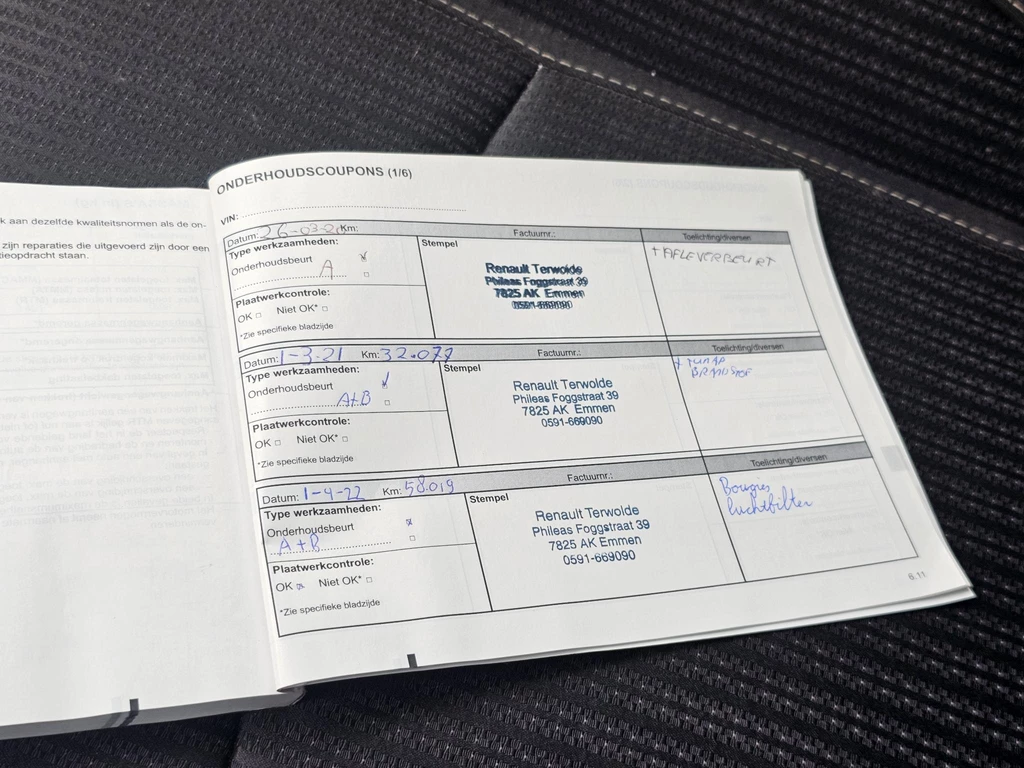 k aan dezelfde kwaliteitsnormen als de on-
zijn reparaties die uitgevoerd zijn door een
ieopdracht staan.
ONDERHOUDSCOUPONS (1/6)
VIN:
Datum: 26-03-20 Km: Factuurnr.: Toelichting/diversen
Type werkzaamheden: Stempel
Onderhoudsbeurt
A
Plaatwerkcontrole:
OK □ Niet OK* □
*Zie specifieke bladzijde
Renault Terwolde
Phileas Foggstraat 39
7825 AK Emmen
0591-669090
+ AFLEVERBEURT
Datum: 1-3-21 Km: 32.077 Factuurnr.: Toelichting/diversen
Type werkzaamheden: Stempel
Onderhoudsbeurt
A+B
Plaatwerkcontrole:
OK □ Niet OK* □
*Zie specifieke bladzijde
Renault Terwolde
Phileas Foggstraat 39
7825 AK Emmen
0591-669090
Datum: 1-4-22 Km: 58.019 Factuurnr.: Toelichting/diversen
Type werkzaamheden: Stempel
Onderhoudsbeurt
A+B
Plaatwerkcontrole:
OK Niet OK* □
*Zie specifieke bladzijde
Renault Terwolde
Phileas Foggstraat 39
7825 AK Emmen
0591-669090
Bougies
luchtfilter
6.11